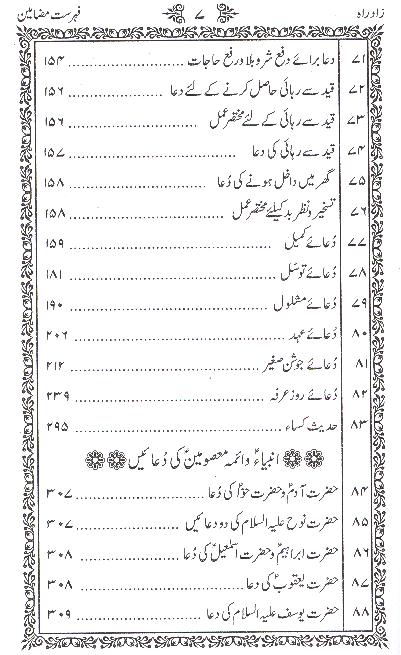 زادِ راہ ۷ فہرست مضامین
۷۱ دعا برائے دفع شر و بلا و رفع حاجات ۱۵۴
۷۲ قید سے رہائی حاصل کرنے کے لئے دعا ۱۵۶
۷۳ قید سے رہائی کے لئے مختصر عمل ۱۵۶
۷۴ قید سے رہائی کی دعا ۱۵۷
۷۵ گھر میں داخل ہونے کی دُعا ۱۵۸
۷۶ تسخیر و نظر بد کیلئے مختصر عمل ۱۵۸
۷۷ دُعائے کمیل ۱۵۹
۷۸ دُعائے توسّل ۱۸۱
۷۹ دُعائے مشلول ۱۹۰
۸۰ دُعائے عہد ۲۰۶
۸۱ دُعائے جوشن صغیر ۲۱۲
۸۲ دُعائے روز عرفہ ۲۳۹
۸۳ حدیث کساء ۲۹۵
انبیاءؑ و ائمہ معصومینؑ کی دُعائیں
۸۴ حضرت آدمؑ و حضرت حوّاؑ کی دُعا ۳۰۷
۸۵ حضرت نوح علیہ السلام کی دو دعائیں ۳۰۷
۸۶ حضرت ابراہیمؑ و حضرت اسمٰعیلؑ کی دُعا ۳۰۸
۸۷ حضرت یعقوبؑ کی دعا ۳۰۸
۸۸ حضرت یوسف علیہ السلام کی دعا ۳۰۹